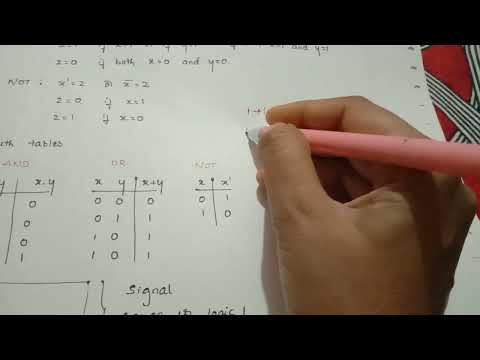 and y=1
z=0 if both x=0 and y=0
NOT : x'=z or x̄=z
z=0 if x=1
z=1 if x=0
1+1
tables
AND OR NOT
y x.y x y x+y x x'
0 0 0 0 0 1
0 0 1 1 1 0
0 1 0 1
1 1 0 1
Signal
logic 1